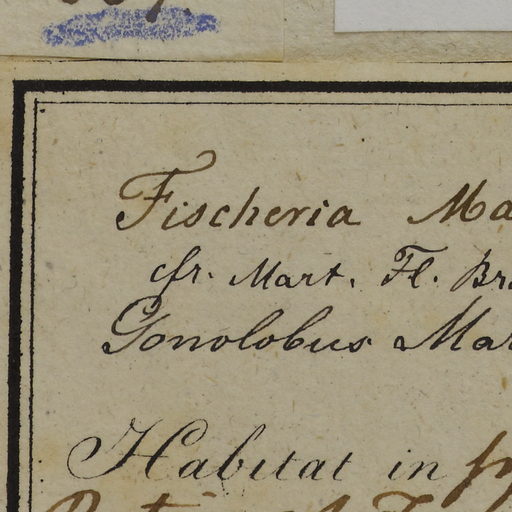 Fischeria Ma
cfr. Mart. Fl. Br
Gonolobus Mar
Habitat in